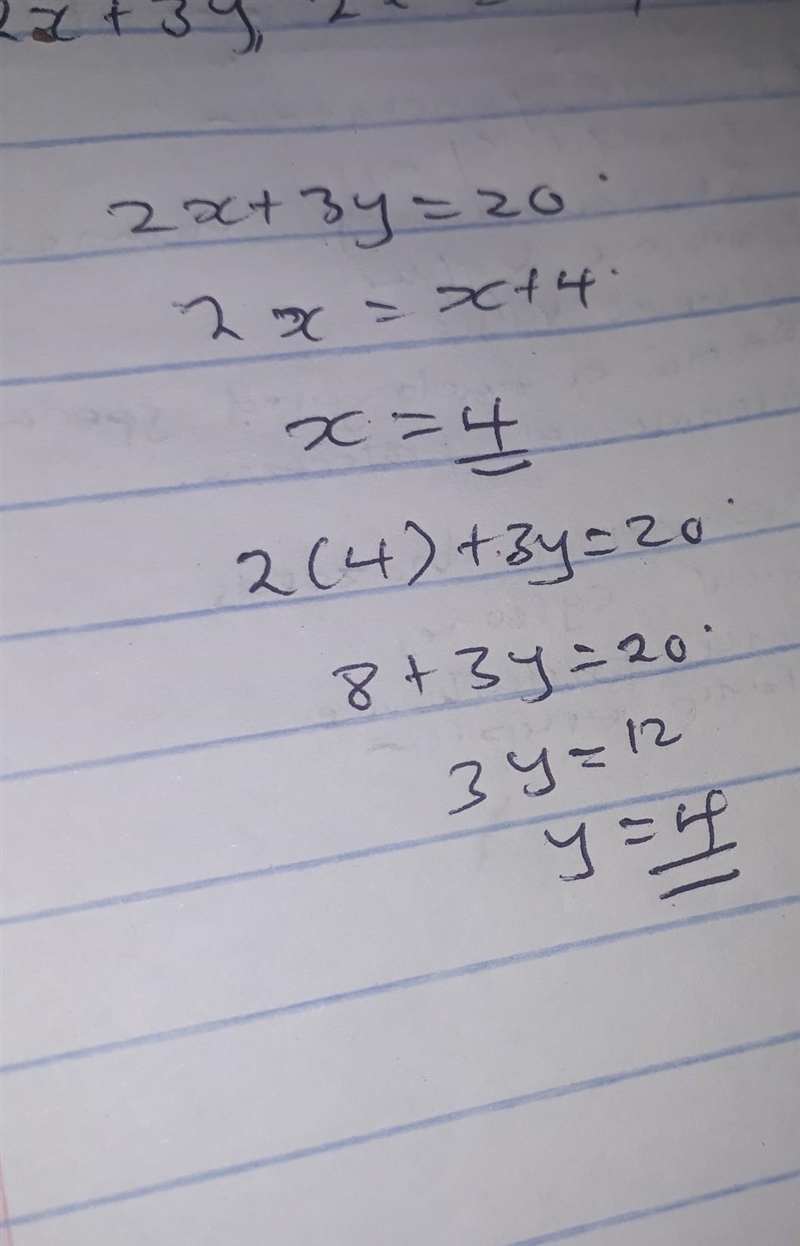 2x + 3y,
2x + 3y = 20
2x = x + 4
x = 4
2(4) + 3y = 20
8 + 3y = 20
3y = 12
y = 4